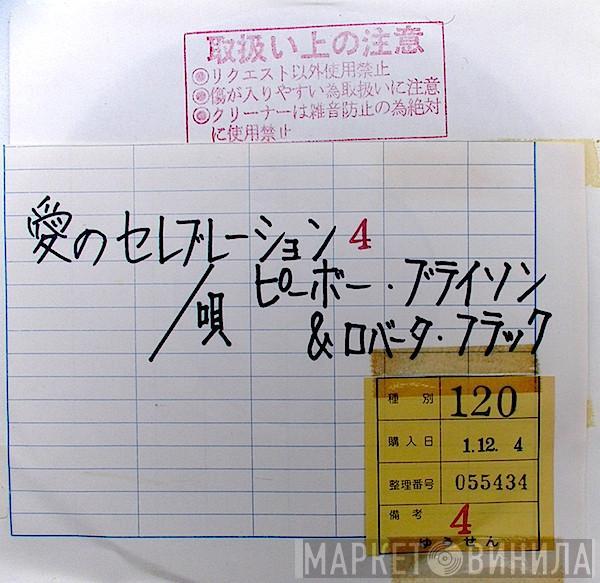 取扱い上の注意
◎リクエスト以外使用禁止
◎傷が入りやすい為取扱いに注意
◎クリーナーは雑音防止の為絶対
に使用禁止
愛のセレブレーション 4
/唄 ピーボー・ブライソン
& ロバータ・フラック
種別 120
購入日 1.12. 4
整理番号 055434
備考 4
ゆうせん
МАРКЕТ ВИНИЛА